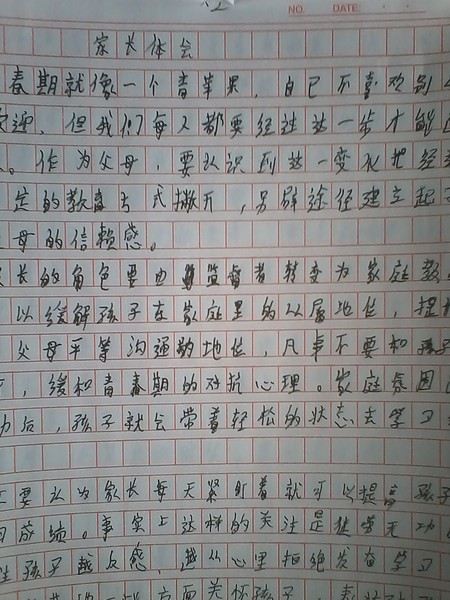 NO. DATE:
家长体会
春期就像一个青苹果，自己不喜欢别
迎，但我们每人都要经过这一步才能
。作为父母，要认识到这一变化把经
定的教育方式撇开，另辟途径建立起
母的信赖感。
长的角色要由监督者转变为家庭教
以缓解孩子在家庭里的从属地位，提
父母平等沟通的地位，凡事不要和孩子
，缓和青春期的对抗心理。家庭氛围
功后，孩子就会带着轻松的状态去学习
要认为家长每天紧盯着就可以提高孩子
成绩。事实上这样的关注是徒劳无功
孩子越反感，越从心里拒绝发奋学习
方面关怀孩子